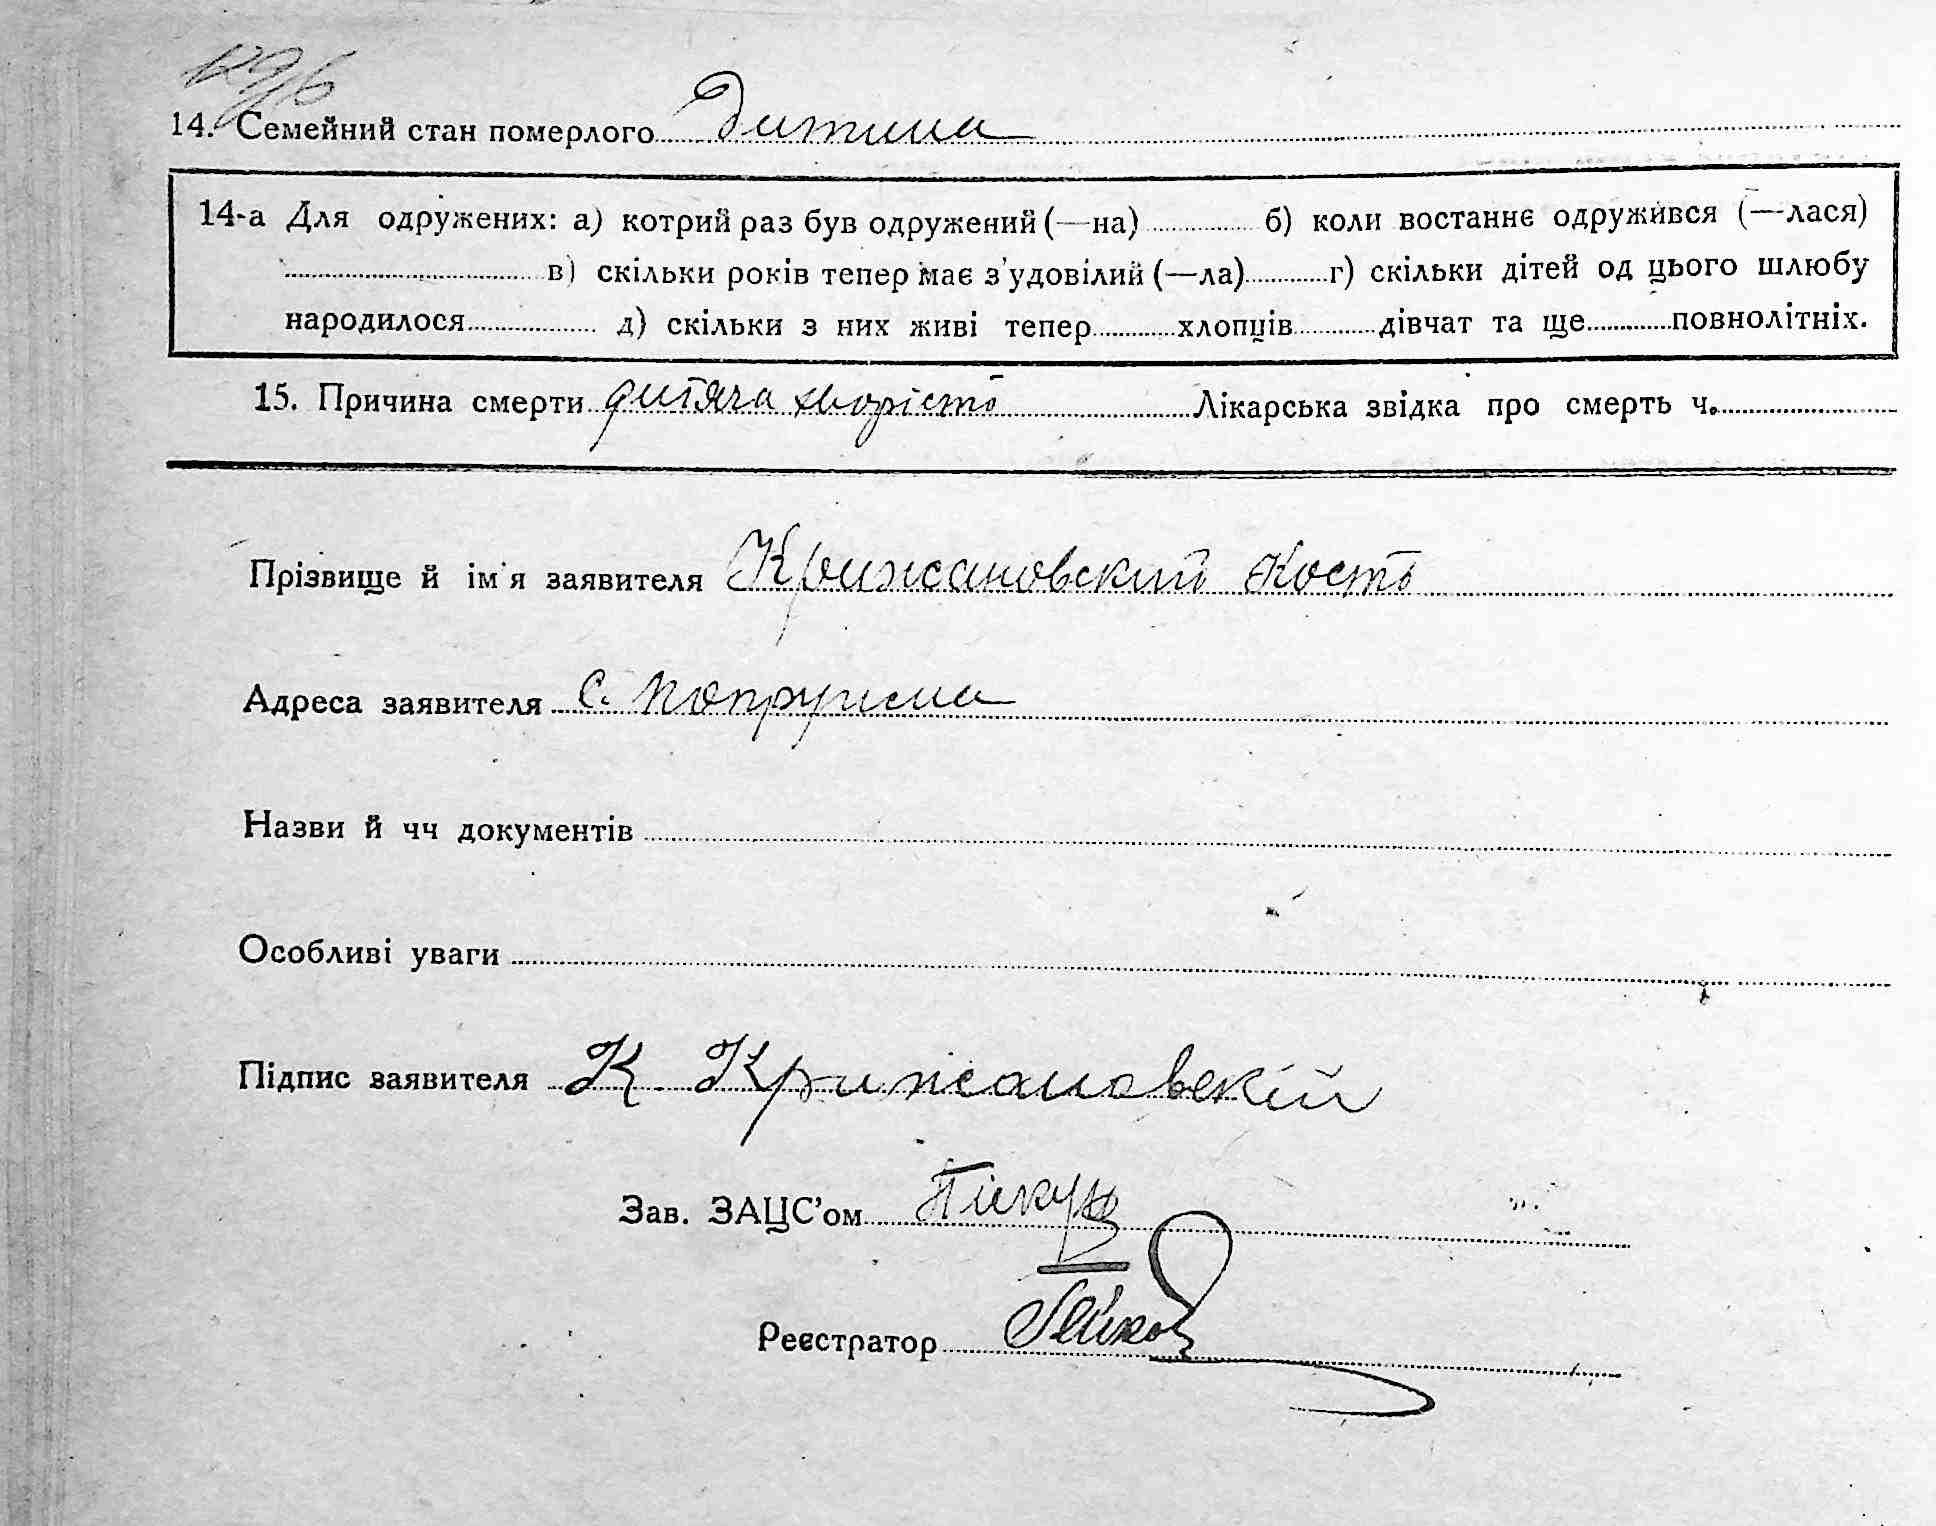 1296
14. Семейний стан померлого Дитина
14-а Для одружених: а) котрий раз був одружений (—на) б) коли востаннє одружився (—лася)
в) скільки років тепер має з'удовілий (—ла) г) скільки дітей од цього шлюбу
народилося д) скільки з них живі тепер хлопців дівчат та ще повнолітніх.
15. Причина смерти дитяча хворість Лікарська звідка про смерть ч.
Прізвище й ім'я заявителя Крижановский Кость
Адреса заявителя с. Попружна
Назви й чч документів
Особливі уваги
Підпис заявителя К Крижановскій
Зав. ЗАЦС'ом
Реєстратор